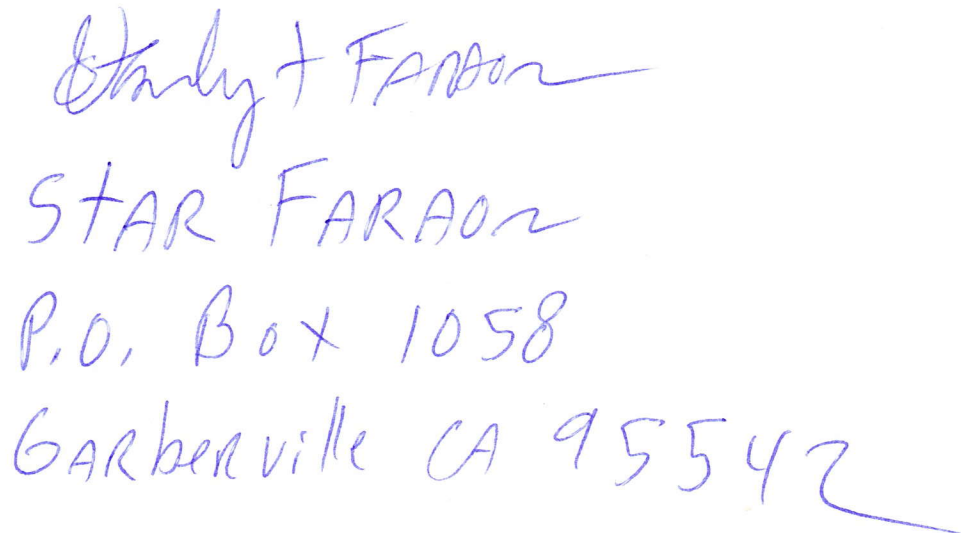 FARAON
STAR FARAON
P.O. Box 1058
GARberville CA 95542